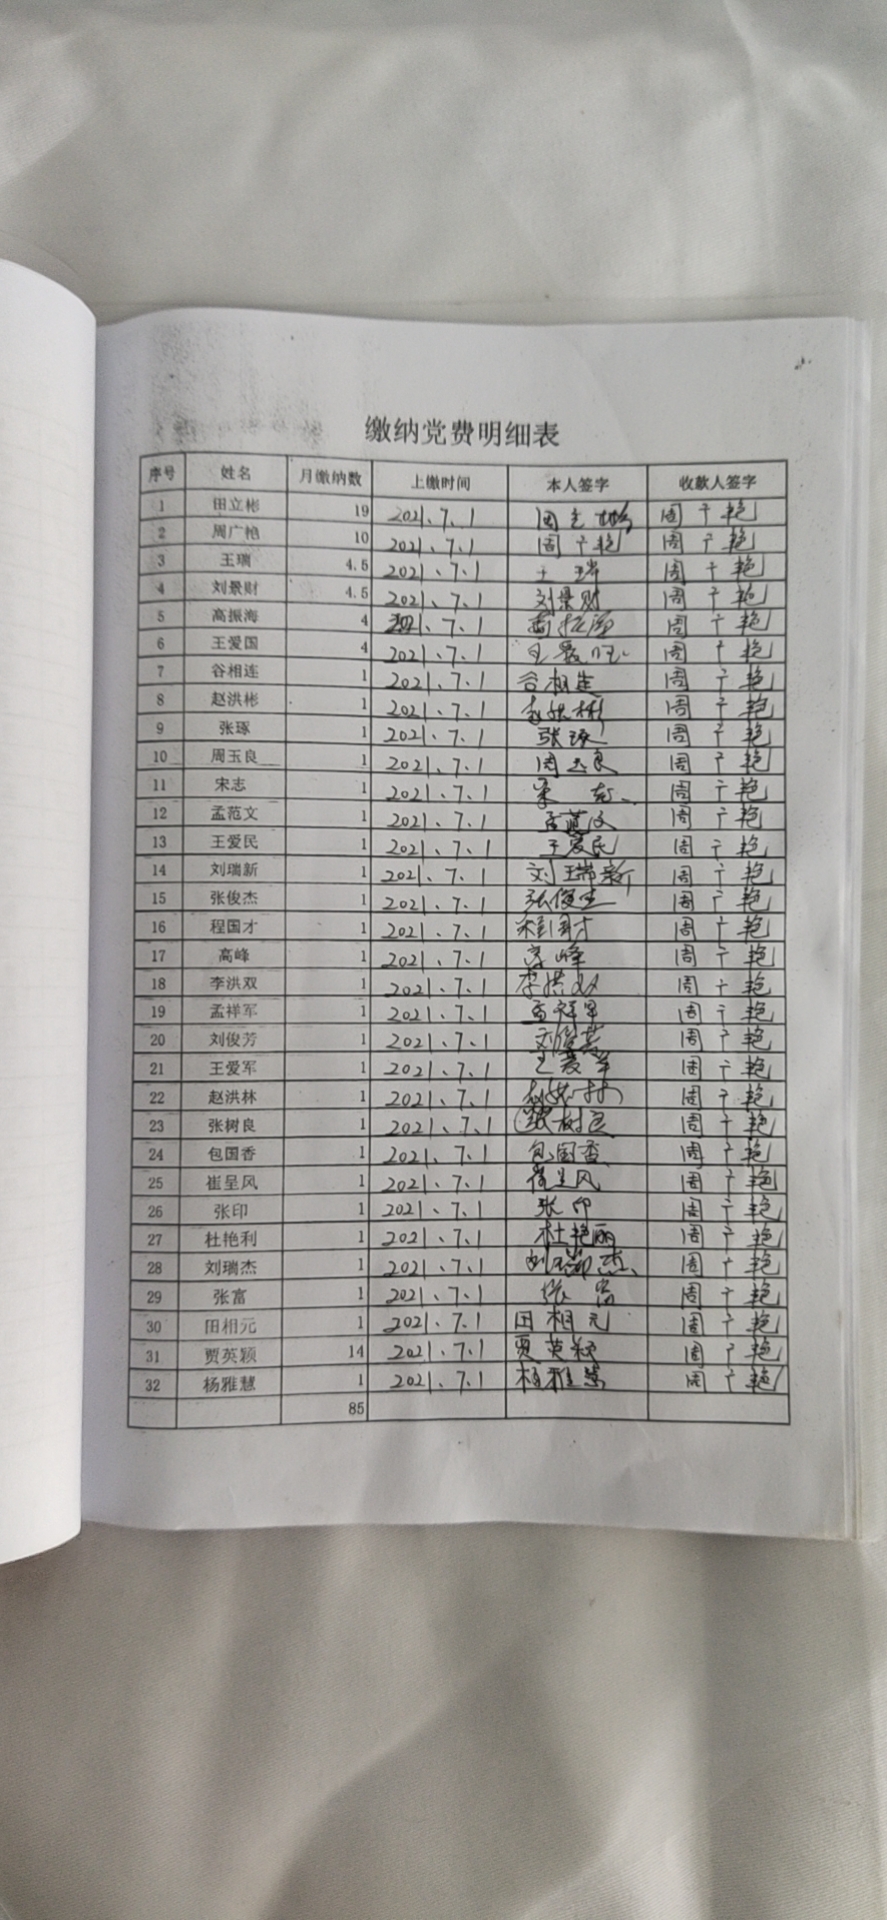 缴纳党费明细表
序号 姓名 月缴纳数 上缴时间 本人签字 收款人签字
1 田立彬 19 2021.7.1 田立彬 周广艳
2 周广艳 10 2021.7.1 周广艳 周广艳
3 王瑞 4.5 2021.7.1 王瑞 周广艳
4 刘景财 4.5 2021.7.1 刘景财 周广艳
5 高振海 4 2021.7.1 周广艳
6 王爱国 4 2021.7.1 周广艳
7 谷相连 1 2021.7.1 谷相连 周广艳
8 赵洪彬 1 2021.7.1 赵洪彬 周广艳
9 张琢 1 2021.7.1 张琢 周广艳
10 周玉良 1 2021.7.1 周玉良 周广艳
11 宋志 1 2021.7.1 宋志 周广艳
12 孟范文 1 2021.7.1 孟范文 周广艳
13 王爱民 1 2021.7.1 王爱民 周广艳
14 刘瑞新 1 2021.7.1 刘瑞新 周广艳
15 张俊杰 1 2021.7.1 张俊杰 周广艳
16 程国才 1 2021.7.1 程国才 周广艳
17 高峰 1 2021.7.1 高峰 周广艳
18 李洪双 1 2021.7.1 李洪双 周广艳
19 孟祥军 1 2021.7.1 孟祥军 周广艳
20 刘俊芳 1 2021.7.1 刘俊芳 周广艳
21 王爱军 1 2021.7.1 王爱军 周广艳
22 赵洪林 1 2021.7.1 赵洪林 周广艳
23 张树良 1 2021.7.1 张树良 周广艳
24 包国香 1 2021.7.1 包国香 周广艳
25 崔呈风 1 2021.7.1 崔呈风 周广艳
26 张印 1 2021.7.1 张印 周广艳
27 杜艳利 1 2021.7.1 杜艳丽 周广艳
28 刘瑞杰 1 2021.7.1 刘瑞杰 周广艳
29 张富 1 2021.7.1 张富 周广艳
30 田相元 1 2021.7.1 田相元 周广艳
31 贾英颖 14 2021.7.1 贾英颖 周广艳
32 杨雅慧 1 2021.7.1 杨雅慧 周广艳
85